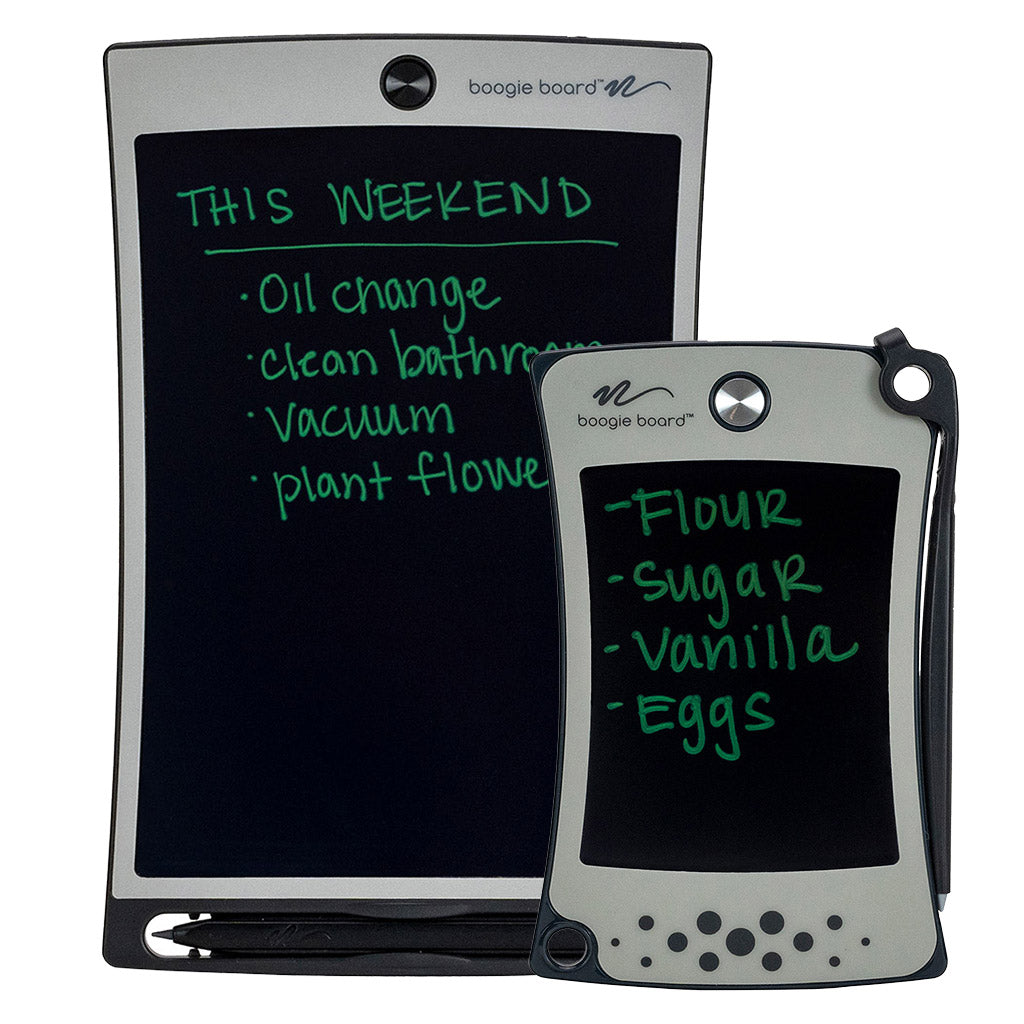 boogie board™
THIS WEEKEND
· Oil change
· clean bathroom
· vacuum
· plant flowe
boogie board™
- FlOUR
- SugaR
- Vanilla
- Eggs